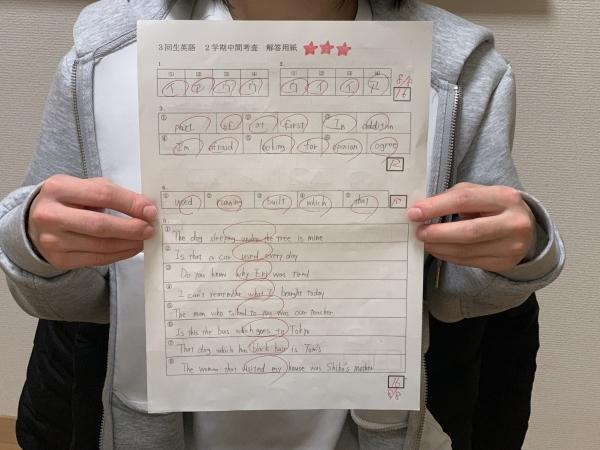 3回生英語 2学期中間考査 解答用紙
1. 2.
① ② ③ ④ ① ② ③ ④
イ エ ウ ウ ウ イ イ エ
8/8
16
3.
① part of ② at first ③ In addition
④ I'm afraid ⑤ looking for ⑥ opinion agree
12
4.
① used ② running ③ built ④ which ⑤ that
10
5.
① The dog sleeping under the tree is mine
② Is that a car used every day
③ Do you know why Eri was
④ I can't remember what I bought today
⑤ The man who talked to you was our teacher
⑥ Is this the bus which goes to Tokyo
⑦ That dog which has black hair is Tom's
⑧ The woman that visited my house was Shiho's mother
16
8/8